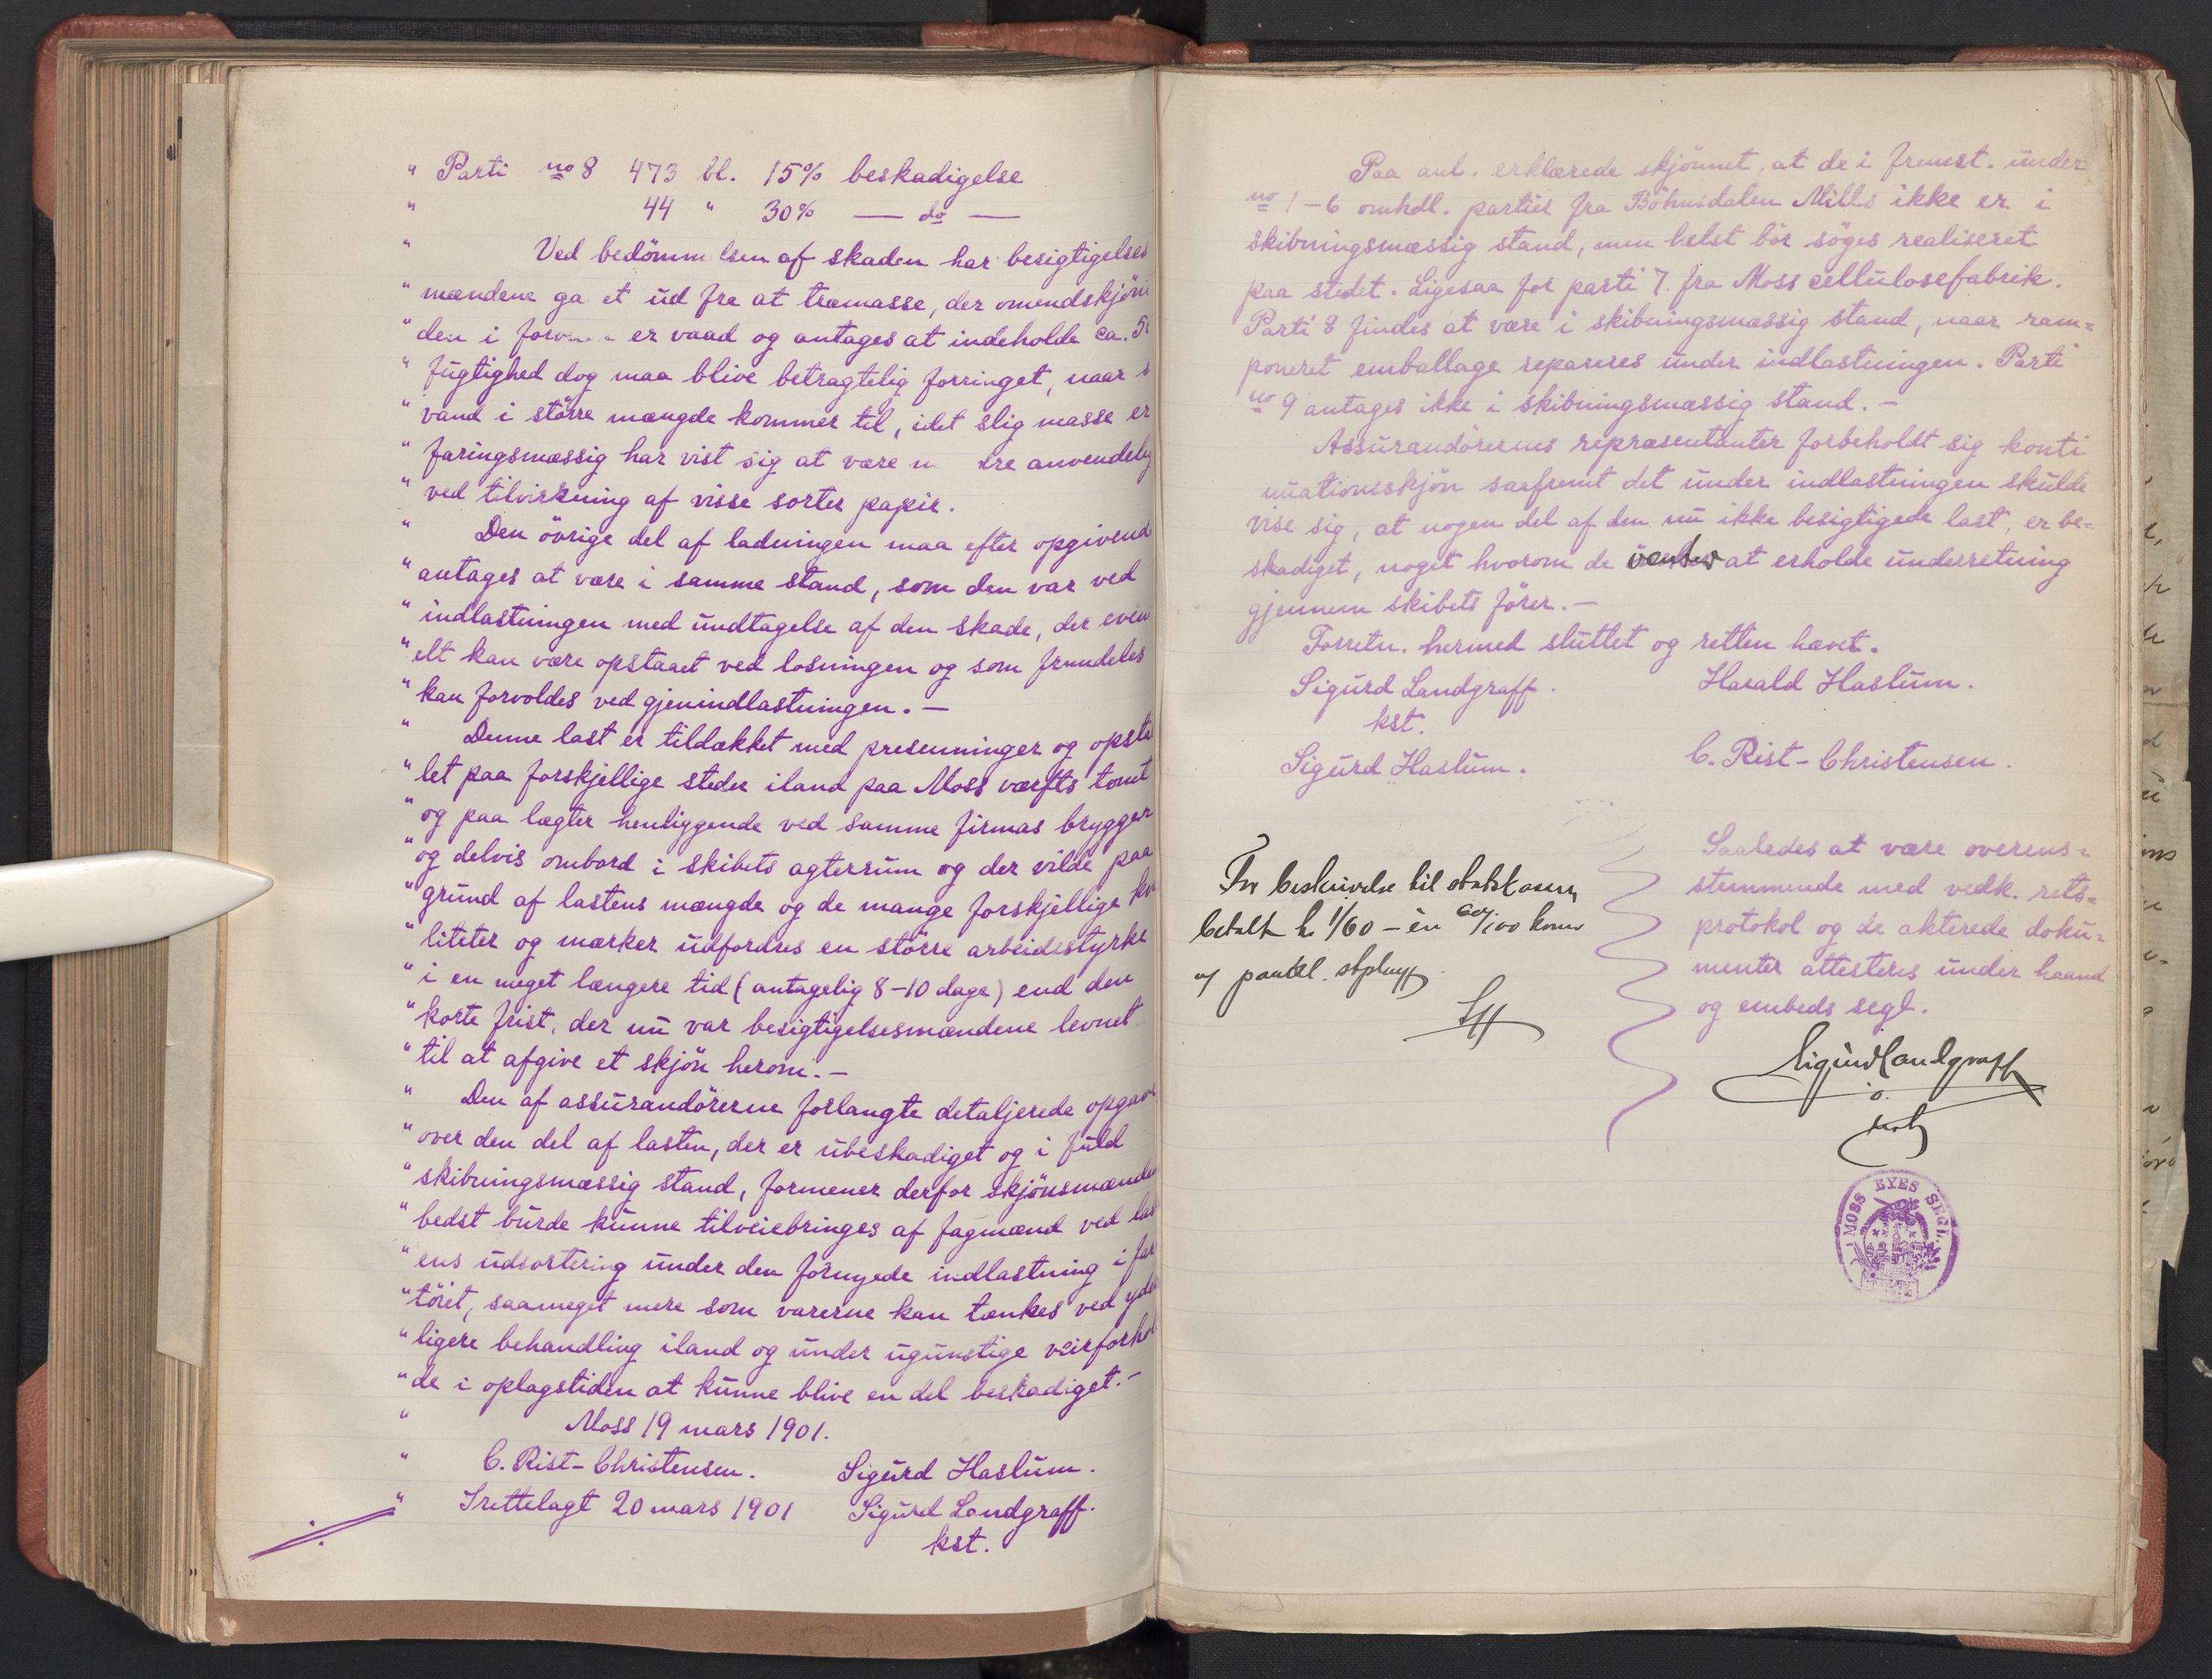 " Parti no 8 473 bl. 15% beskadigelse
" 44 " 30% — do —
" Ved bedömmelsen af skaden har besigtigelses
" mændene ga et ud fra at træmasse, der omendskjön
" den i er vaad og antages at indeholde ca. 5
" fugtighed dog maa blive betragtelig forringet, naar
" vand i större mængde kommer til, idet slig masse er
" faringsmæssig har vist sig at være anvendelig
" ved tilvirkning af visse sorter papir.
" Den övrige del af ladningen maa efter opgivend
" antages at være i samme stand, som den var ved
" indlastningen med undtagelse af den skade, der even
" elt kan være opstaaet ved losningen og som fremdeles
" kan forvoldes ved gjenindlastningen. —
" Denne last er tildækket med presenninger og opsta
" let paa forskjellige steder iland paa Moss værfts tomt
" og paa lægter henliggende ved samme firmas brygger
" og delvis ombord i skibets agterrum og der vilde paa
" grund af lastens mængde og de mange forskjellige kva
" liteter og mærker udfordres en större arbeidsstyrke
" i en meget længere tid (antagelig 8-10 dage) end den
" korte frist, der nu var besigtigelsesmændene levnet
" til at afgive et skjön herom. —
" Den af assurandörerne forlangte detaljerede opgave
" over den del af lasten, der er ubeskadiget og i fuld
" skibningsmæssig stand, formener derfor skjönsmænden
" bedst burde kunne tilveiebringes af fagmænd ved last
" ens udsortering under den fornyede indlastning i far
" töiet, saameget mere som varerne kan tænkes ved yder
" ligere behandling iland og under ugunstige veirforhol
" de i oplagstiden at kunne blive en del beskadiget. —
" Moss 19 mars 1901.
" C. Rist-Christensen. Sigurd Haslum.
" Irettelagt 20 mars 1901 Sigurd Landgraff.
kst.
Paa anl. erklærede skjönnet, at de i fremst. under
no 1-6 omhdl. partier fra Böhnsdalen Mills ikke er i
skibningsmæssig stand, men helst bör söges realiseret
paa stedet. Ligesaa for parti 7. fra Moss cellulosefabrik.
Parti 8 findes at være i skibningsmæssig stand, naar ram=
poneret emballage repareres under indlastningen. Parti
no 9 antages ikke i skibningsmæssig stand. —
Assurandörernes repræsentanter forbeholdt sig konti
nuationsskjön saafremt det under indlastningen skulde
vise sig, at nogen del af den nu ikke besigtigede last, er be=
skadiget, noget hvorom de venter at erholde underretning
gjennem skibets förer. —
Forretn. hermed sluttet og retten hævet.
Sigurd Landgraff. Harald Haslum.
kst.
Sigurd Haslum. C. Rist-Christensen.
For beskrivelse til statskassen
betalt kr 1/60 — én 60/100 kroner
Saaledes at være overens=
stemmende med vedk. rets=
protokol og de akterede doku=
menter attesteres under haand
og embeds segl.
Sigurd Landgraff
o.
MOSS BYES SEGL.